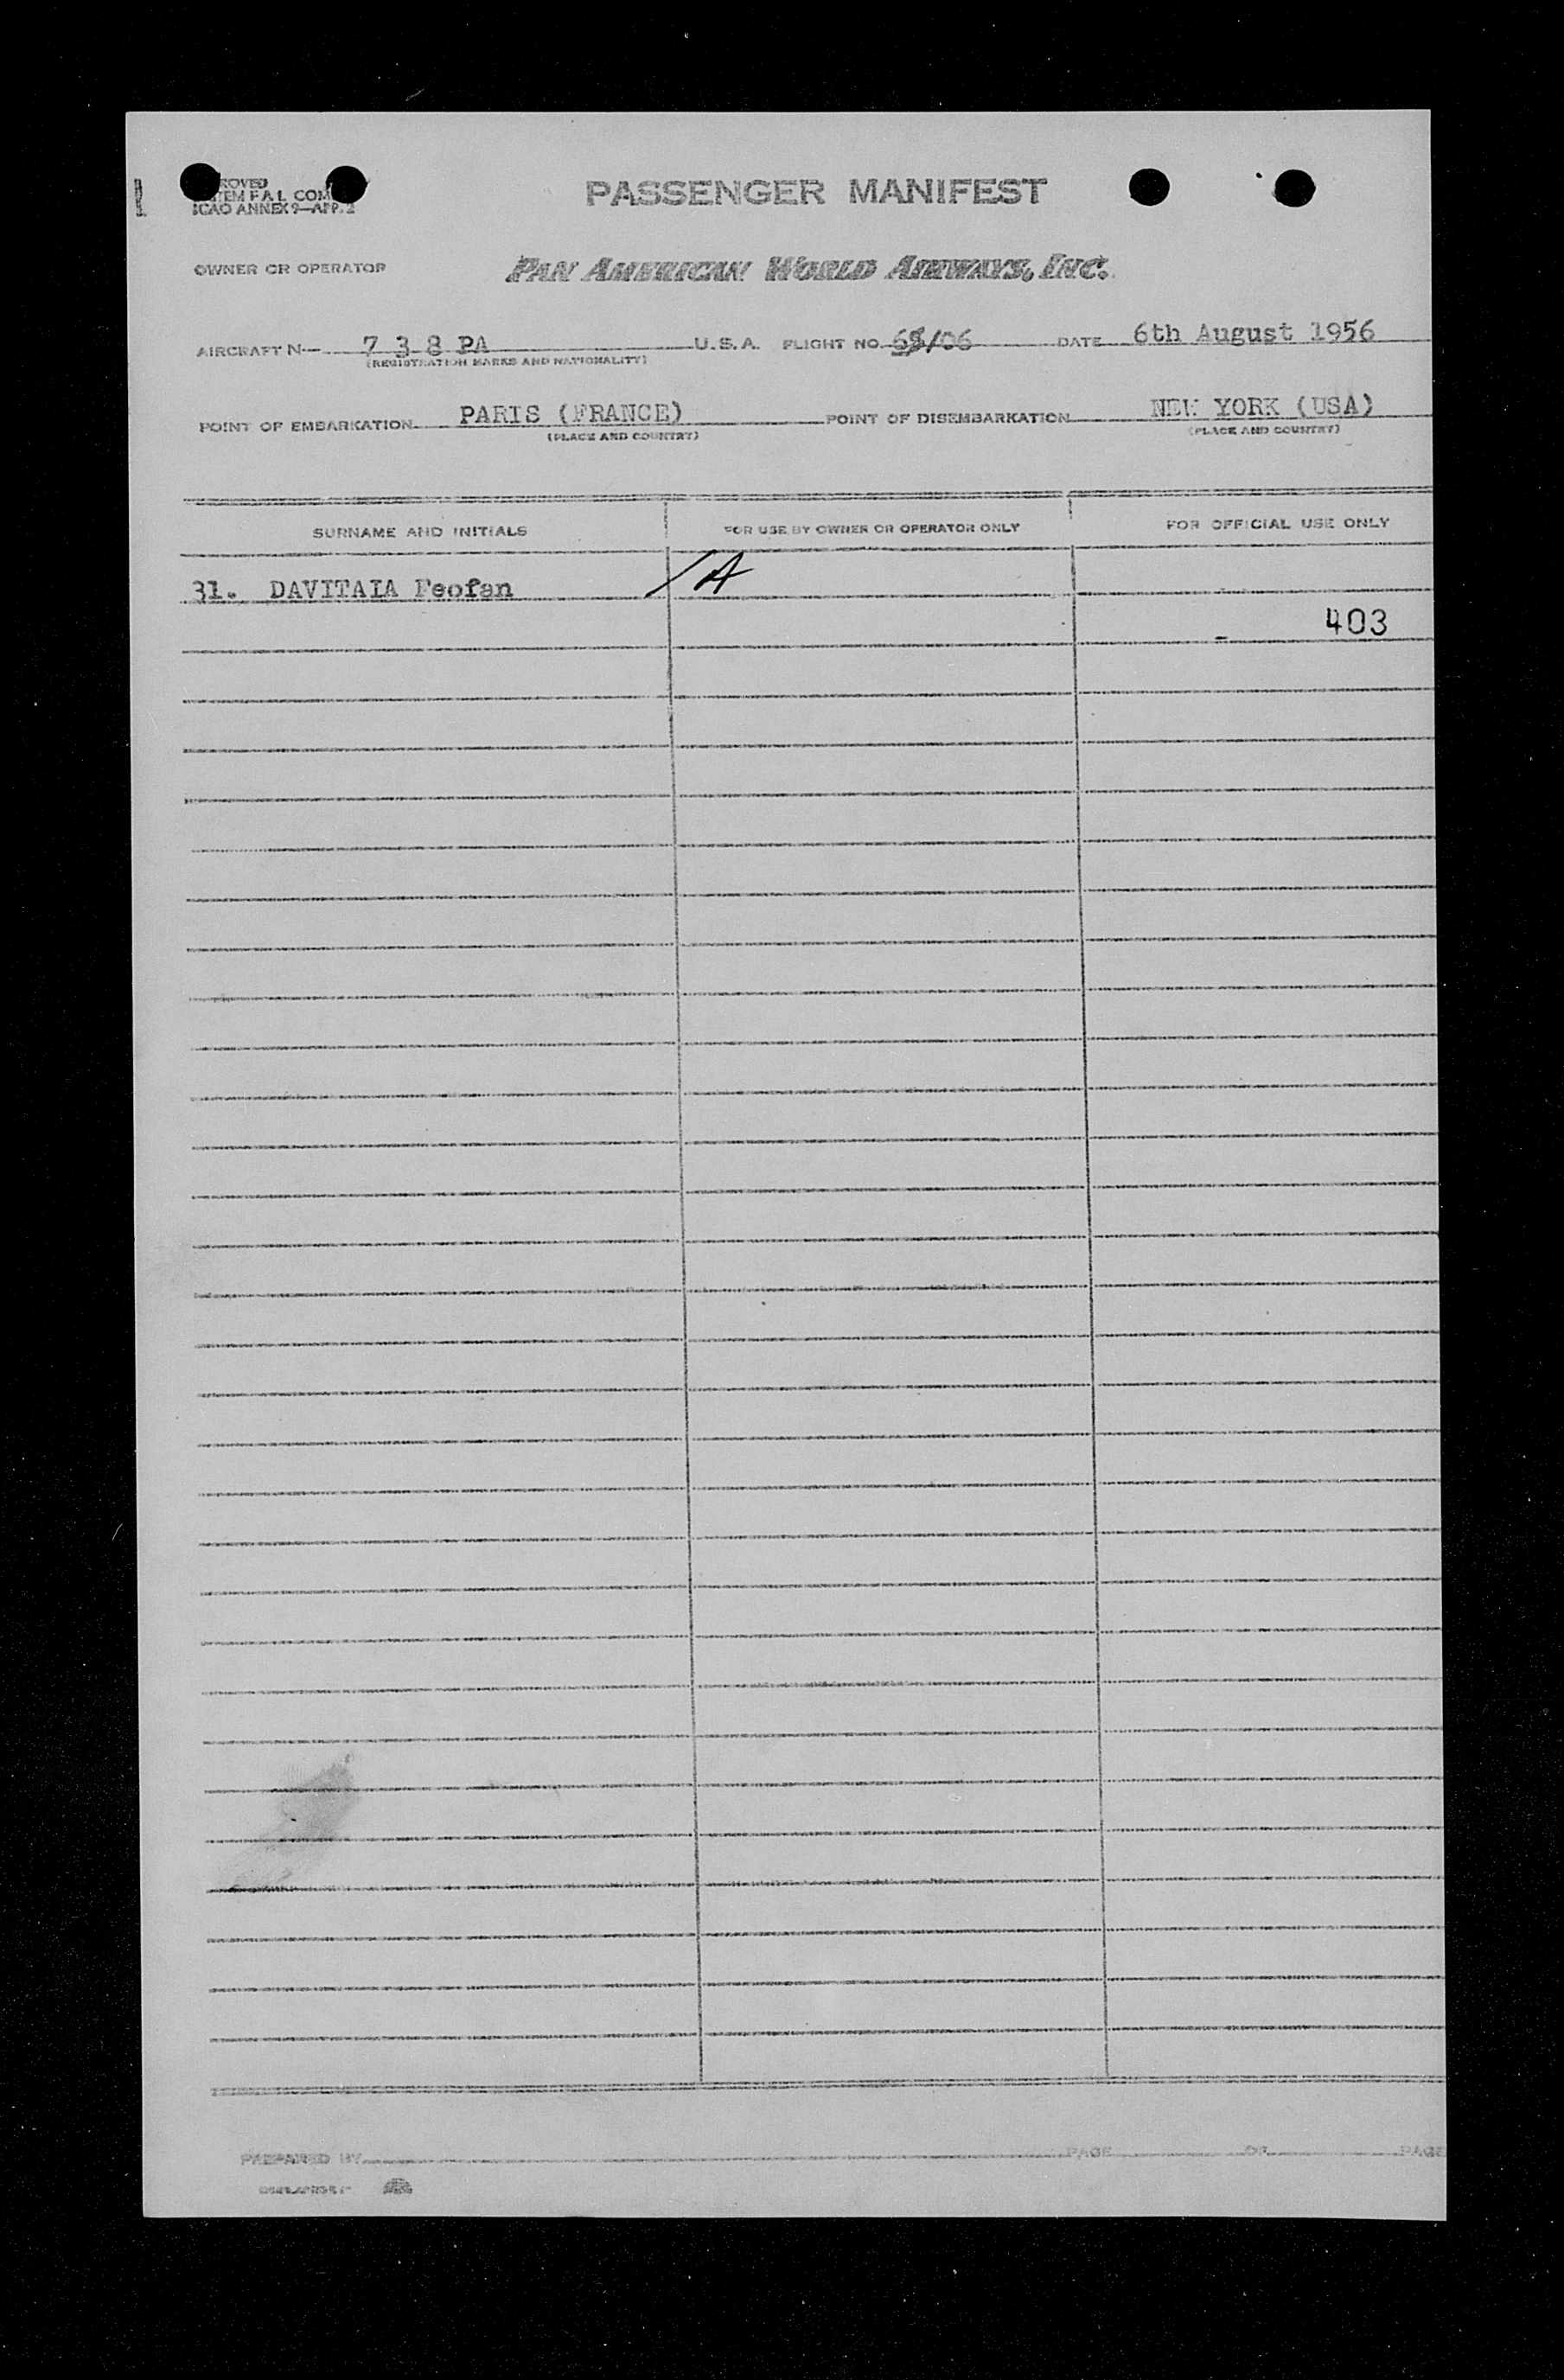 PASSENGER MANIFEST
ICAO ANNEX 9—APP. 2
OWNER OR OPERATOR PAN AMERICAN WORLD AIRWAYS, INC.
AIRCRAFT N— 7 3 8 PA U.S.A. FLIGHT NO. /06 DATE 6th August 1956
(REGISTRATION MARKS AND NATIONALITY)
POINT OF EMBARKATION PARIS (FRANCE) POINT OF DISEMBARKATION NEW YORK (USA)
(PLACE AND COUNTRY) (PLACE AND COUNTRY)
SURNAME AND INITIALS FOR USE BY OWNER OR OPERATOR ONLY FOR OFFICIAL USE ONLY
31. DAVITAIA Feofan A
403
PREPARED BY PAGE OF PAGE